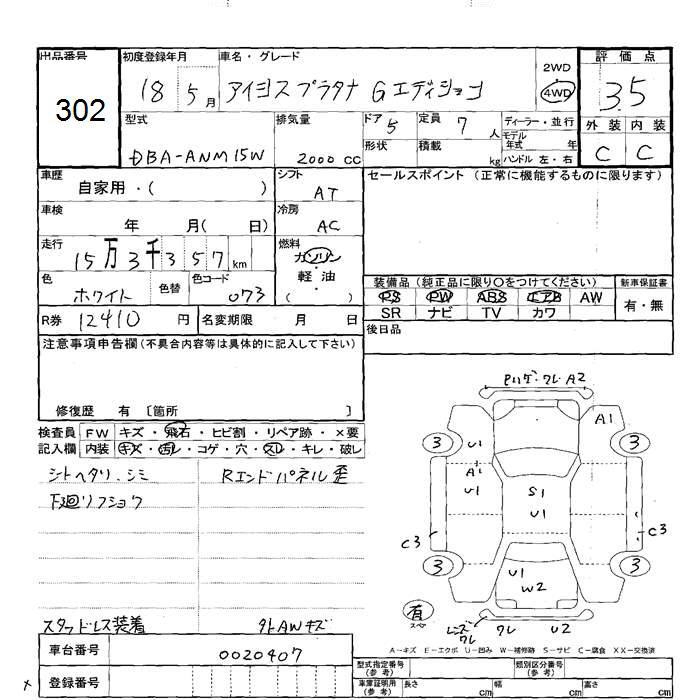 出品番号 初度登録年月 車名・グレード 2WD 評価点
302 18 5月 アイシスプラタナ Gエディション 4WD 3.5
型式 排気量 ドア 5 定員 7人 ディーラー・並行 外装 内装
DBA-ANM15W 2000cc 形状 積載 kg モデル年式 年 ハンドル 左・右 C C
車歴 自家用・( ) シフト AT セールスポイント (正常に機能するものに限ります)
車検 年 月( 日) 冷房 AC
走行 15万3千357km 燃料 ガソリン・軽油 ( )
色 ホワイト 色替 色コード 073 装備品 (純正品に限り○をつけてください) 新車保証書
PS PW ABS エアB AW 有・無
SR ナビ TV カワ
R券 12410円 名変期限 月 日 後日品
注意事項申告欄 (不具合内容等は具体的に記入して下さい)
修復歴 有 [箇所 ]
検査員 FW キズ・飛石・ヒビ割・リペア跡・×要
記入欄 内装 キズ・汚レ・コゲ・穴・スレ・キレ・破レ
シートヘタリ.シミ Rエンドパネル歪
下廻リフショク
スタッドレス装着 外AWキズ
車台番号 0020407
登録番号
ワレ A2
A1
3 U1 3
A1
U1 S1
U1
C3 C3
3 U1 3
W2
有 スペア
レンズワレ ワレ U2
A-キズ E-エクボ U-凹み W-補修跡 S-サビ C-腐食 XX-交換済
型式指定番号 (参考) 類別区分番号 (参考)
車庫証明用 (参考) 長さ cm 幅 cm 高さ cm